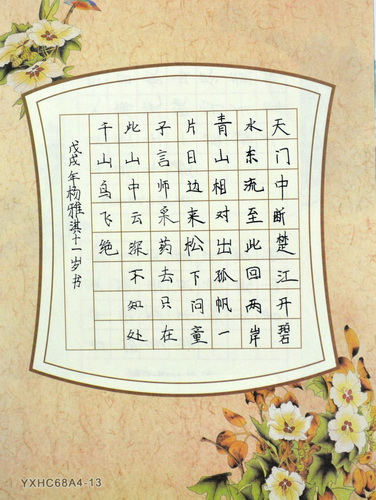 天门中断楚江开碧
水东流至此回两岸
青山相对出孤帆一
片日边来松下问童
子言师采药去只在
此山中云深不知处
千山鸟飞绝
戊戌年杨雅淇十一岁书
YXHC68A4-13